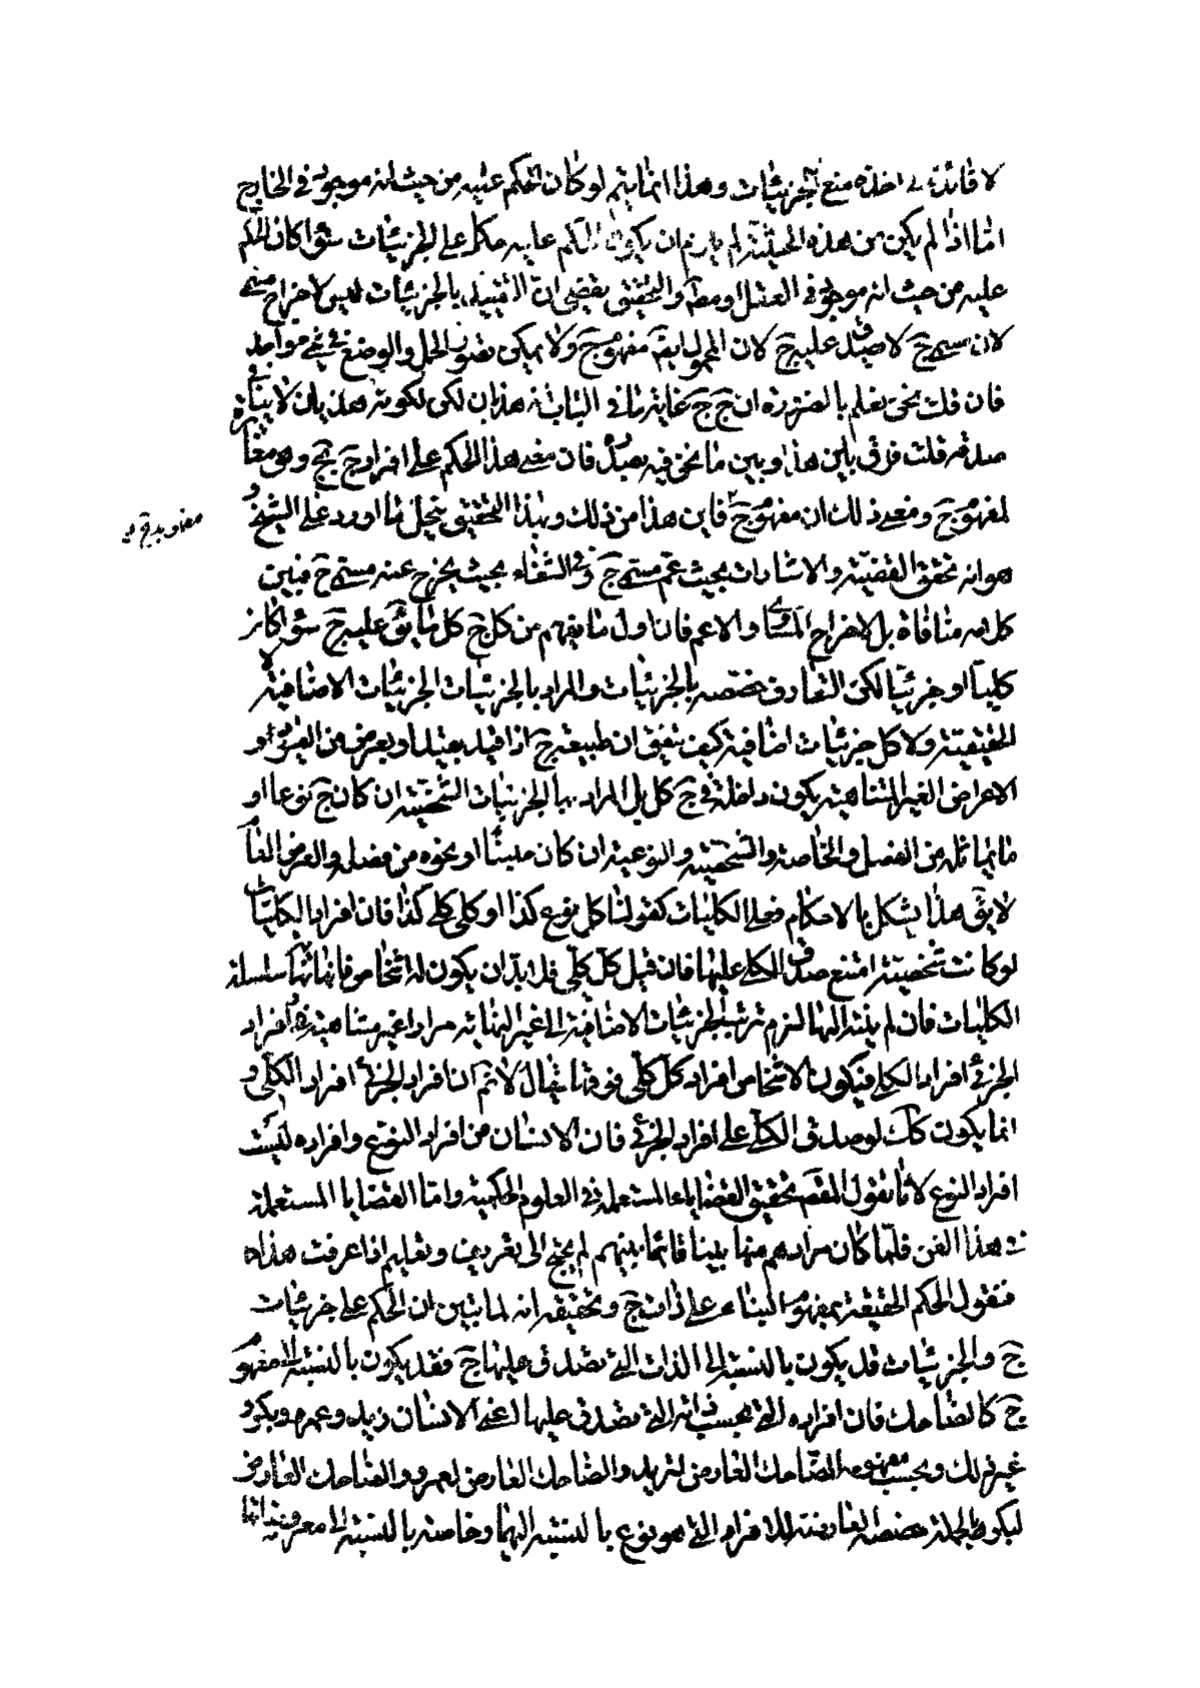 لا فائدة في اخذه منع الجزئيات وهذا انما يتم لو كان الحكم عليه من حيث انه موجود في الخارج
امّا اذا لم يكن من هذه الحيثية لم يلزم ان يكون الحكم عليه حكما على الجزئيات سواء كان الحكم
عليه من حيث انه موجود في العقل او مطلقا والتحقيق يقتضي ان التقييد بالجزئيات ليس لاخراج مسمى
لان مسمى ج لا يصدق عليه ج لان المحمول ايضا مفهوم ج ولا يمكن تصور الحمل والوضع في شيء واحد
فان قلت نحن نعلم بالضرورة ان ج ج غاية ما في الباب انه هذيان لكن لكونه هذيان لا ينافي
صدقه قلت فرق بين هذا وبين ما نحن فيه بصدده فان معنى هذا الحكم على افراد ج بج وهو مغاير
لمفهوم ج ومعنى ذلك ان مفهوم ج ج فاين هذا من ذلك وبهذا التحقيق ينحل ما اورد على الشيخ و
هو انه حقق القضية في الاشارات بحيث عم مسمى ج وفي الشفاء بحيث يخرج عنه مسمى ج فبين
كلاميه منافاة بل لاخراج المساوي والاعم فان اول ما يفهم من كل ج كل ما يق عليه ج سواء كان
كليا او جزئيا لكن التعارف خصصه بالجزئيات والمراد بالجزئيات الجزئيات الاضافية لا
الحقيقية ولا كل جزئيات اضافية كيف تتفق ان طبيعة ج اذا قيد بقيد او بعرض من الفصول او
الاعراض الغير المتناهية يكون داخلة في ج كل بل المراد بالجزئيات الشخصية ان كان ج نوعا او
ما يماثله من الفصل والخاصة والشخصية والنوعية ان كان جنسا او نحوه من فصله والعرض العام
لا يق هذا يشكل بالاحكام فعلى الكليات كقولنا كل نوع كذا او كلي كلي كذا فان افراد الكليات
لو كانت شخصية امتنع صدق الكلي عليها فان قيل كل كلي فلا بد ان يكون له اشخاص فانها نهاية سلسلة
الكليات فان لم ينته اليها لزم ترتب الجزئيات الاضافية الى غير النهاية مرارا غير متناهية وافراد
الجزئي افراد الكلي فيكون الاشخاص افراد كل كلي فوقها يقال لا نم ان افراد الجزئي افراد الكلي و
انما يكون كك لو صدق الكلي على افراد الجزئي فان الانسان من افراد النوع وافراده ليست
افراد النوع لانا نقول المقصود تحقيق القضايا المستعملة في العلوم الحكمية واما القضايا المستعملة
في هذا الفن فلما كان مرادهم منها بينا قائما بينهم لم يحتج الى تعريف وتعليم اذا عرفت هذا
فنقول الحكم الحقيقة بمفهوم الباء على ذات ج وتحقيقه انه لما تبين ان الحكم على جزئيات
ج والجزئيات قد يكون بالنسبة الى الذات التي تصدق عليها ج فقد يكون بالنسبة الى مفهوم
ج كالضاحك فان افراده التي بحسب ذاته التي تصدق عليها اعني الانسان زيد وعمرو وبكر و
غير ذلك وبحسب مفهومه الضاحك العارض لزيد والضاحك العارض لعمرو والضاحك العارض
لبكر وبالجملة حصصه العارضة للافراد التي هو نوع بالنسبة اليها وخاصة بالنسبة الى معروضاتها